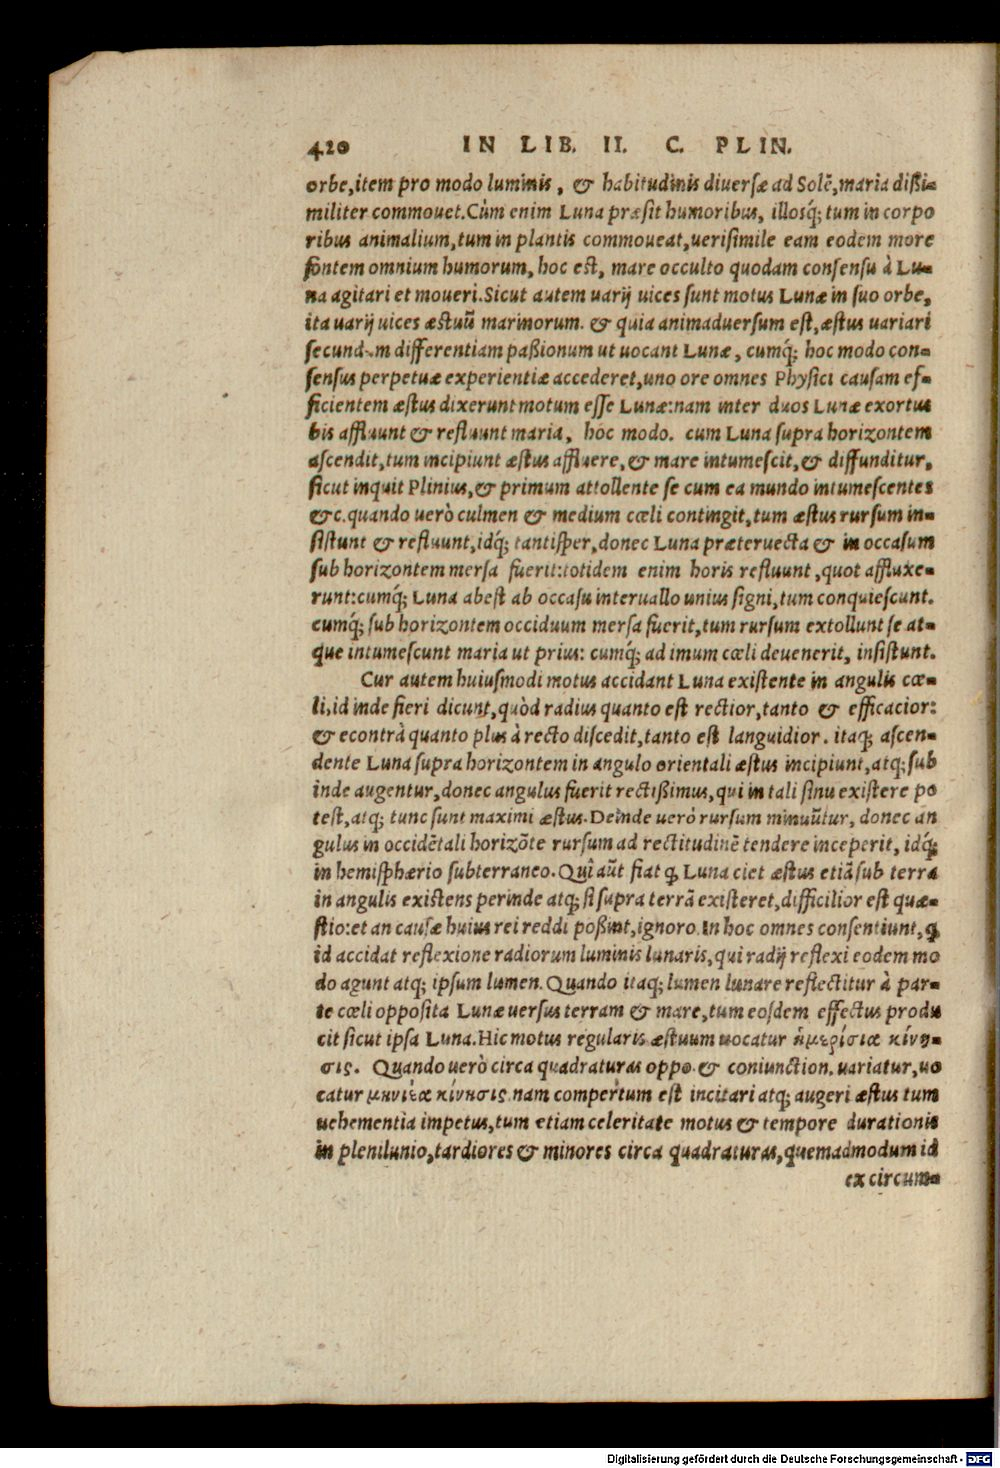 420 IN LIB. II. C. PLIN.
orbe, item pro modo luminis, & habitudinis diuersæ ad Solē, maria dißi-
militer commouet. Cùm enim Luna præsit humoribus, illosq́; tum in corpo
ribus animalium, tum in plantis commoueat, uerisimile eam eodem more
fontem omnium humorum, hoc est, mare occulto quodam consensu à Lu-
na agitari et moueri. Sicut autem uarij uices sunt motus Lunæ in suo orbe,
ita uarij uices æstuũ marinorum. & quia animaduersum est, æstus uariari
secundum differentiam paßionum ut uocant Lunæ, cumq́; hoc modo con-
sensus perpetuæ experientiæ accederet, uno ore omnes Physici causam ef-
ficientem æstus dixerunt motum esse Lunæ: nam inter duos Lunæ exortus
bis affluunt & refluunt maria, hoc modo. cum Luna supra horizontem
ascendit, tum incipiunt æstus affluere, & mare intumescit, & diffunditur,
sicut inquit Plinius, & primum attollente se cum ea mundo intumescentes
&c. quando uerò culmen & medium cœli contingit, tum æstus rursum in-
sistunt & refluunt, idq́; tantisper, donec Luna præteruecta & in occasum
sub horizontem mersa fuerit: totidem enim horis refluunt, quot affluxe-
runt: cumq́; Luna abest ab occasu interuallo unius signi, tum conquiescunt.
cumq́; sub horizontem occiduum mersa fuerit, tum rursum extollunt se at-
que intumescunt maria ut prius: cumq́; ad imum cœli deuenerit, insistunt.
Cur autem huiusmodi motus accidant Luna existente in angulis cœ-
li, id inde fieri dicunt, quòd radius quanto est rectior, tanto & efficacior:
& econtrà quanto plus à recto discedit, tanto est languidior. itaq; ascen-
dente Luna supra horizontem in angulo orientali æstus incipiunt, atq; sub
inde augentur, donec angulus fuerit rectißimus, qui in tali sinu existere po
test, atq; tunc sunt maximi æstus. Deinde uerò rursum minuũtur, donec an
gulus in occidētali horizōte rursum ad rectitudinē tendere inceperit, idq́;
in hemisphærio subterraneo. Quî aũt fiat ꝙ Luna ciet æstus etiā sub terra
in angulis existens perinde atq; si supra terrā existeret, difficilior est quæ-
stio: et an causæ huius rei reddi poßint, ignoro. In hoc omnes consentiunt, ꝙ
id accidat reflexione radiorum luminis lunaris, qui radij reflexi eodem mo
do agunt atq; ipsum lumen. Quando itaq; lumen lunare reflectitur à par-
te cœli opposita Lunæ uersus terram & mare, tum eosdem effectus produ
cit sicut ipsa Luna. Hic motus regularis æstuum uocatur ἡμερίσια κίνη-
σις. Quando uerò circa quadraturas oppo. & coniunction. uariatur, uo
catur μηνιέα κίνησις. nam compertum est incitari atq; augeri æstus tum
uehementia impetus, tum etiam celeritate motus & tempore durationis
in plenilunio, tardiores & minores circa quadraturas, quemadmodum id
ex circum-
Digitalisierung gefördert durch die Deutsche Forschungsgemeinschaft - DFG